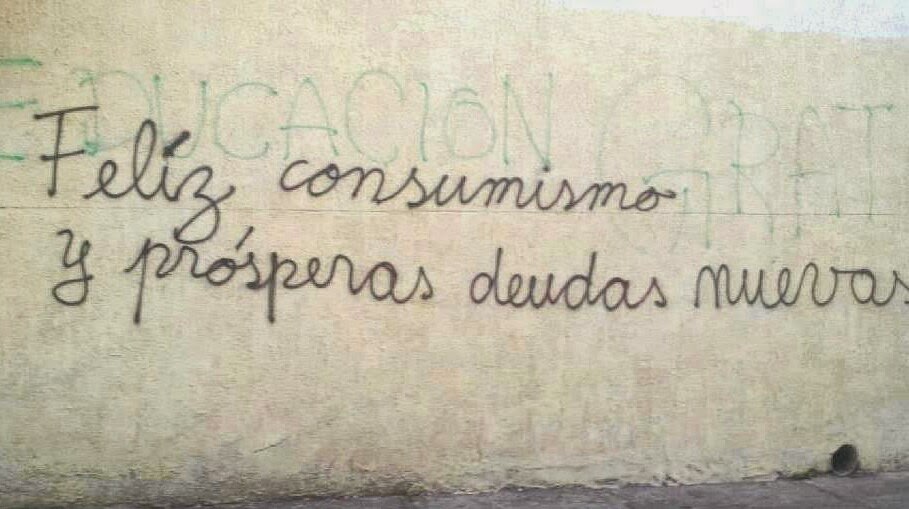 EDUCACION GRAT
Felíz consumismo
y prósperas deudas nuevas